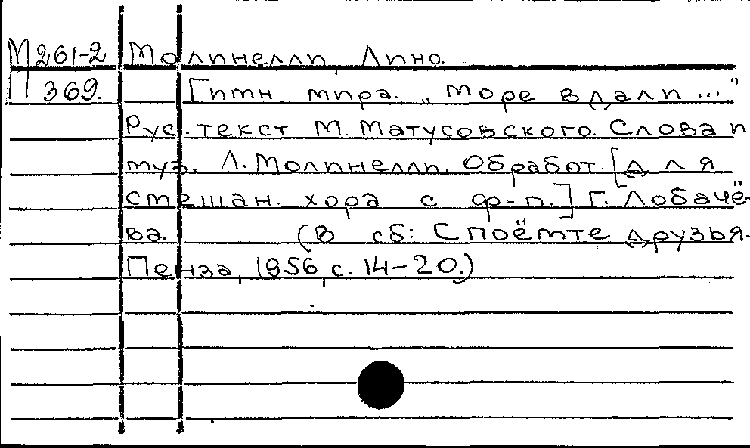 М261-2 Молинелли, Лино.
П 369. Гимн мира. "Море вдали..."
Рус. текст М. Матусовского. Слова и
муз. Л. Молинелли. Обработ. [для
смешан. хора с ф-п.] Г. Лобачё-
ва. (В сб: Споёмте друзья.
Пенза, 1956, с. 14-20.)